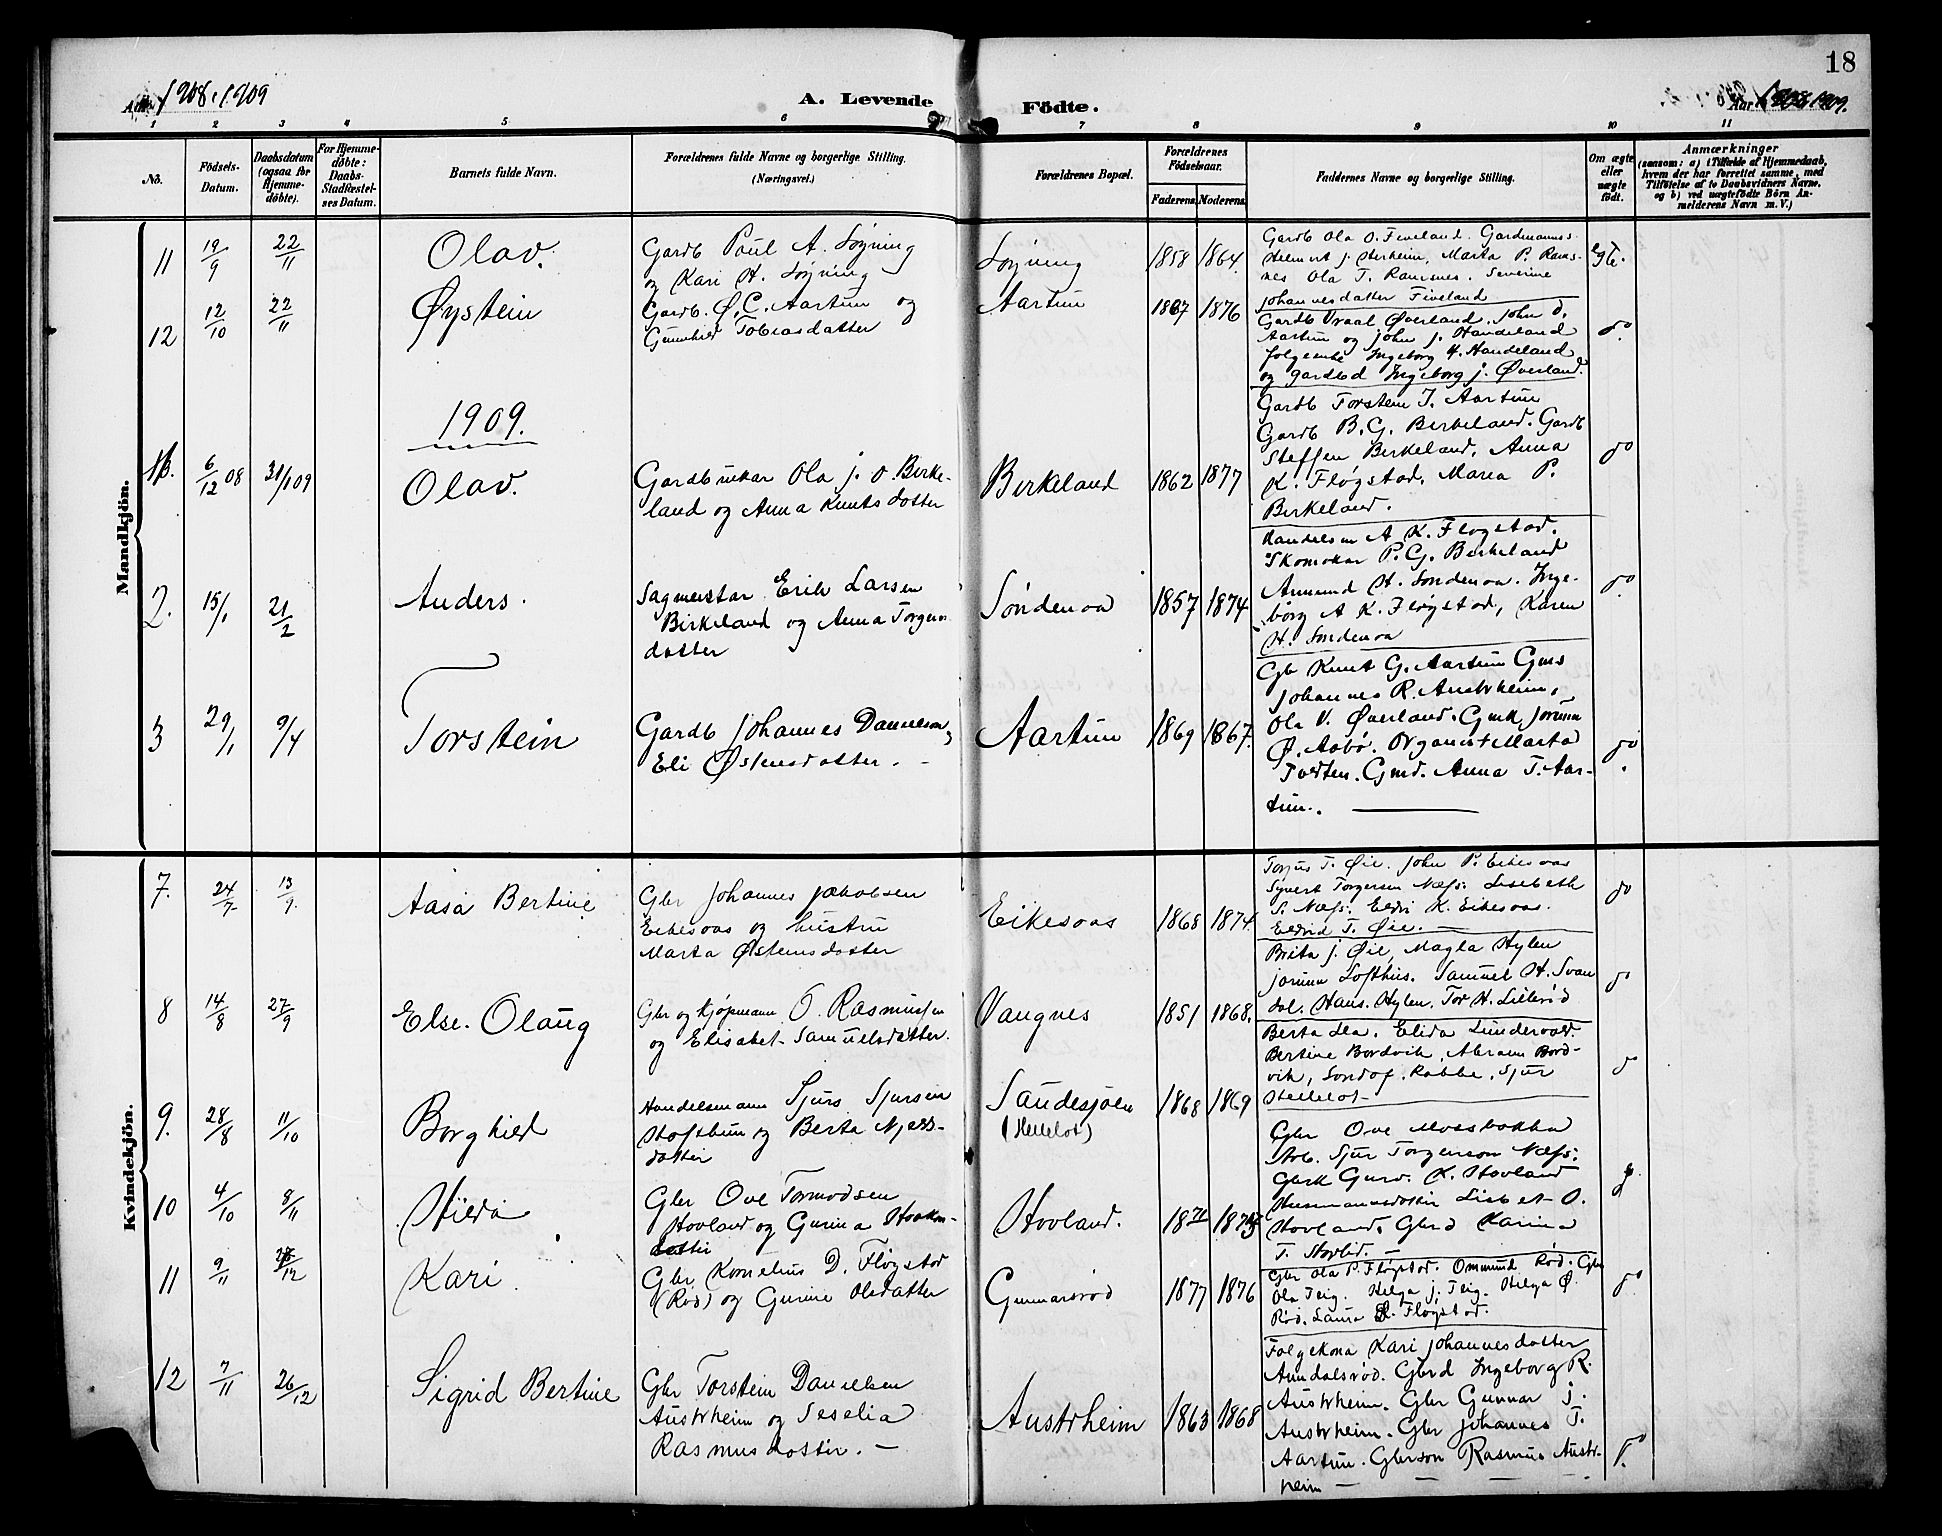 18
Aar 1908, 1909
A. Levende Födte.
Aar 1908 1909.
1 2 3 4 5 6 7 8 9 10 11
No.
Födsels-
Datum.
Daabsdatum
(ogsaa for
Hjemme-
döbte).
For Hjemme-
döbte:
Daabs-
Stadfæstel-
ses Datum.
Barnets fulde Navn.
Forældrenes fulde Navne og borgerlige Stilling.
(Næringsvei.)
Forældrenes Bopæl.
Forældrenes
Födselsaar.
Faderens. Moderens.
Faddernes Navne og borgerlige Stilling.
Om ægte
eller
uægte
födt.
Anmærkninger
(saasom: a) i Tilfælde af Hjemmedaab,
hvem der har forrettet samme, med
Tilföielse af to Daabsvidners Navne.
og b) ved uægtefödte Börn An-
melderens Navn m. V.)
Mandkjön.
11 19/9 22/11 Olav.
Gardb Poul A. Løyning
og Kari H. Løyning
Løyning 1858 1864.
Gardb Ola O. Fiveland. Gardmanns
J. Herheim, Marta P. Rams-
nes Ola T. Ramsnes. Severine
Johannesdatter Fiveland
egte.
12 12/10 22/11 Øystein
Gardb. Ø. C. Aartun og
Gunnhild Tobiasdatter
Aartun 1867 1876
Gardb Vraal Øverland. John O.
Aartun og John J. Handeland
Ingeborg H. Handeland
og gardbd Ingeborg J. Øverland.
do
1909.
1. 6/12 08 31/1 09 Olav.
Gardbrukar Ola J. O. Birke-
land og Anna Knutsdatter
Birkeland 1862 1877
Gardb Torstein T. Aartun
Gardb B. G. Birkeland. Gardb
Steffen Birkeland, Anna
K. Fløgstad, Maria P.
Birkeland.
do
2. 15/1 21/2 Anders.
Sagmeistar Erik Larsen
Birkeland og Anna Torgers
datter
Søndenaa 1857 1874
Handelsm A K. Fløgstad.
Skomakar P. G. Birkeland
Ammund H. Søndenaa. Inge-
børg A K. Fløgstad, Karen
H. Søndenaa
do
3 29/1 9/4 Torstein
Gardb Johannes Danielsen,
Eli Østensdatter. -
Aartun 1869 1867.
Gb Knut G. Aartun Gms
Johannes R. Austrheim,
Ola V. Øverland. Gmk Jorunn
Ø. Aabø. Organist Marta
Tveten. Gmd. Anna T. Aar-
tun.
do
Kvindekjön.
7. 24/7 13/9 Aasa Bertine
Gbr Johannes Jakobsen
Eikesaas og hustru
Marta Østensdatter
Eikesaas 1868 1874.
Torjus T. Øie. John P. Eikesaas
Syvert Torgersen Næss. Lisebeth
S. Næss. Eldri K. Eikesaas.
Eldrid T. Øie.
do
8 14/8 27/9 Else. Olaug
Gbr og Kjøpmann O. Rasmussen
og Elisabet Samuelsdatter.
Vangnes 1851 1868.
Brita J. Øie, Magla Hylen
Jorunn Lofthus. Samuel H. Svan
dal. Hans. Hylen. Tor H. Lillerød
do
9. 28/8 11/10 Borghild
Handelsmann Sjurs Sjursen
og Berta Njæds-
datter
Saudesjøen
(Hellelot) 1868 1869
Berta Lea. Elida Lundervold.
Bertine Bordvik, Abraam Bord-
vik, Rabbe, Sjur
Hellelot
do
10 4/10 8/11 Hilda
Gbr Ove Tormodsen
Hovland og Gurina Haakon-
datter
Hovland. 1871 1873
Gbr Ove Mosbakka
Arb. Sjur Torgerson Næss.
Gbrk Guro. K. Hovland
Husmannsdotter Lisbet O.
Hovland. Gbrd Karina
T.
11 9/11 26/12 Kari
Gbr Kornelius D. Fløgstad
(Rød) og Gurine Olsdatter
Gunnarsrød 1877 1876
Gbr Ola P. Fløgstad. Ommund Rød. Gbr
Ola Teig. Helga J. Teig. Helga Ø.
Rød. Laura Fløgstad.
do
12 7/11 26/12 Sigrid Bertine
Gbr Torstein Danielsen
Austrheim og Seselia
Rasmusdotter. -
Austrheim 1863 1868
Folgekona Kari Johannesdatter
Amdalsrød. Gbrd Ingeborg R.
Austrheim. Gbr Gunnar J.
Austrheim. Gbr Johannes T.
Aartun. Gbrson Rasmus Austr-
heim
do